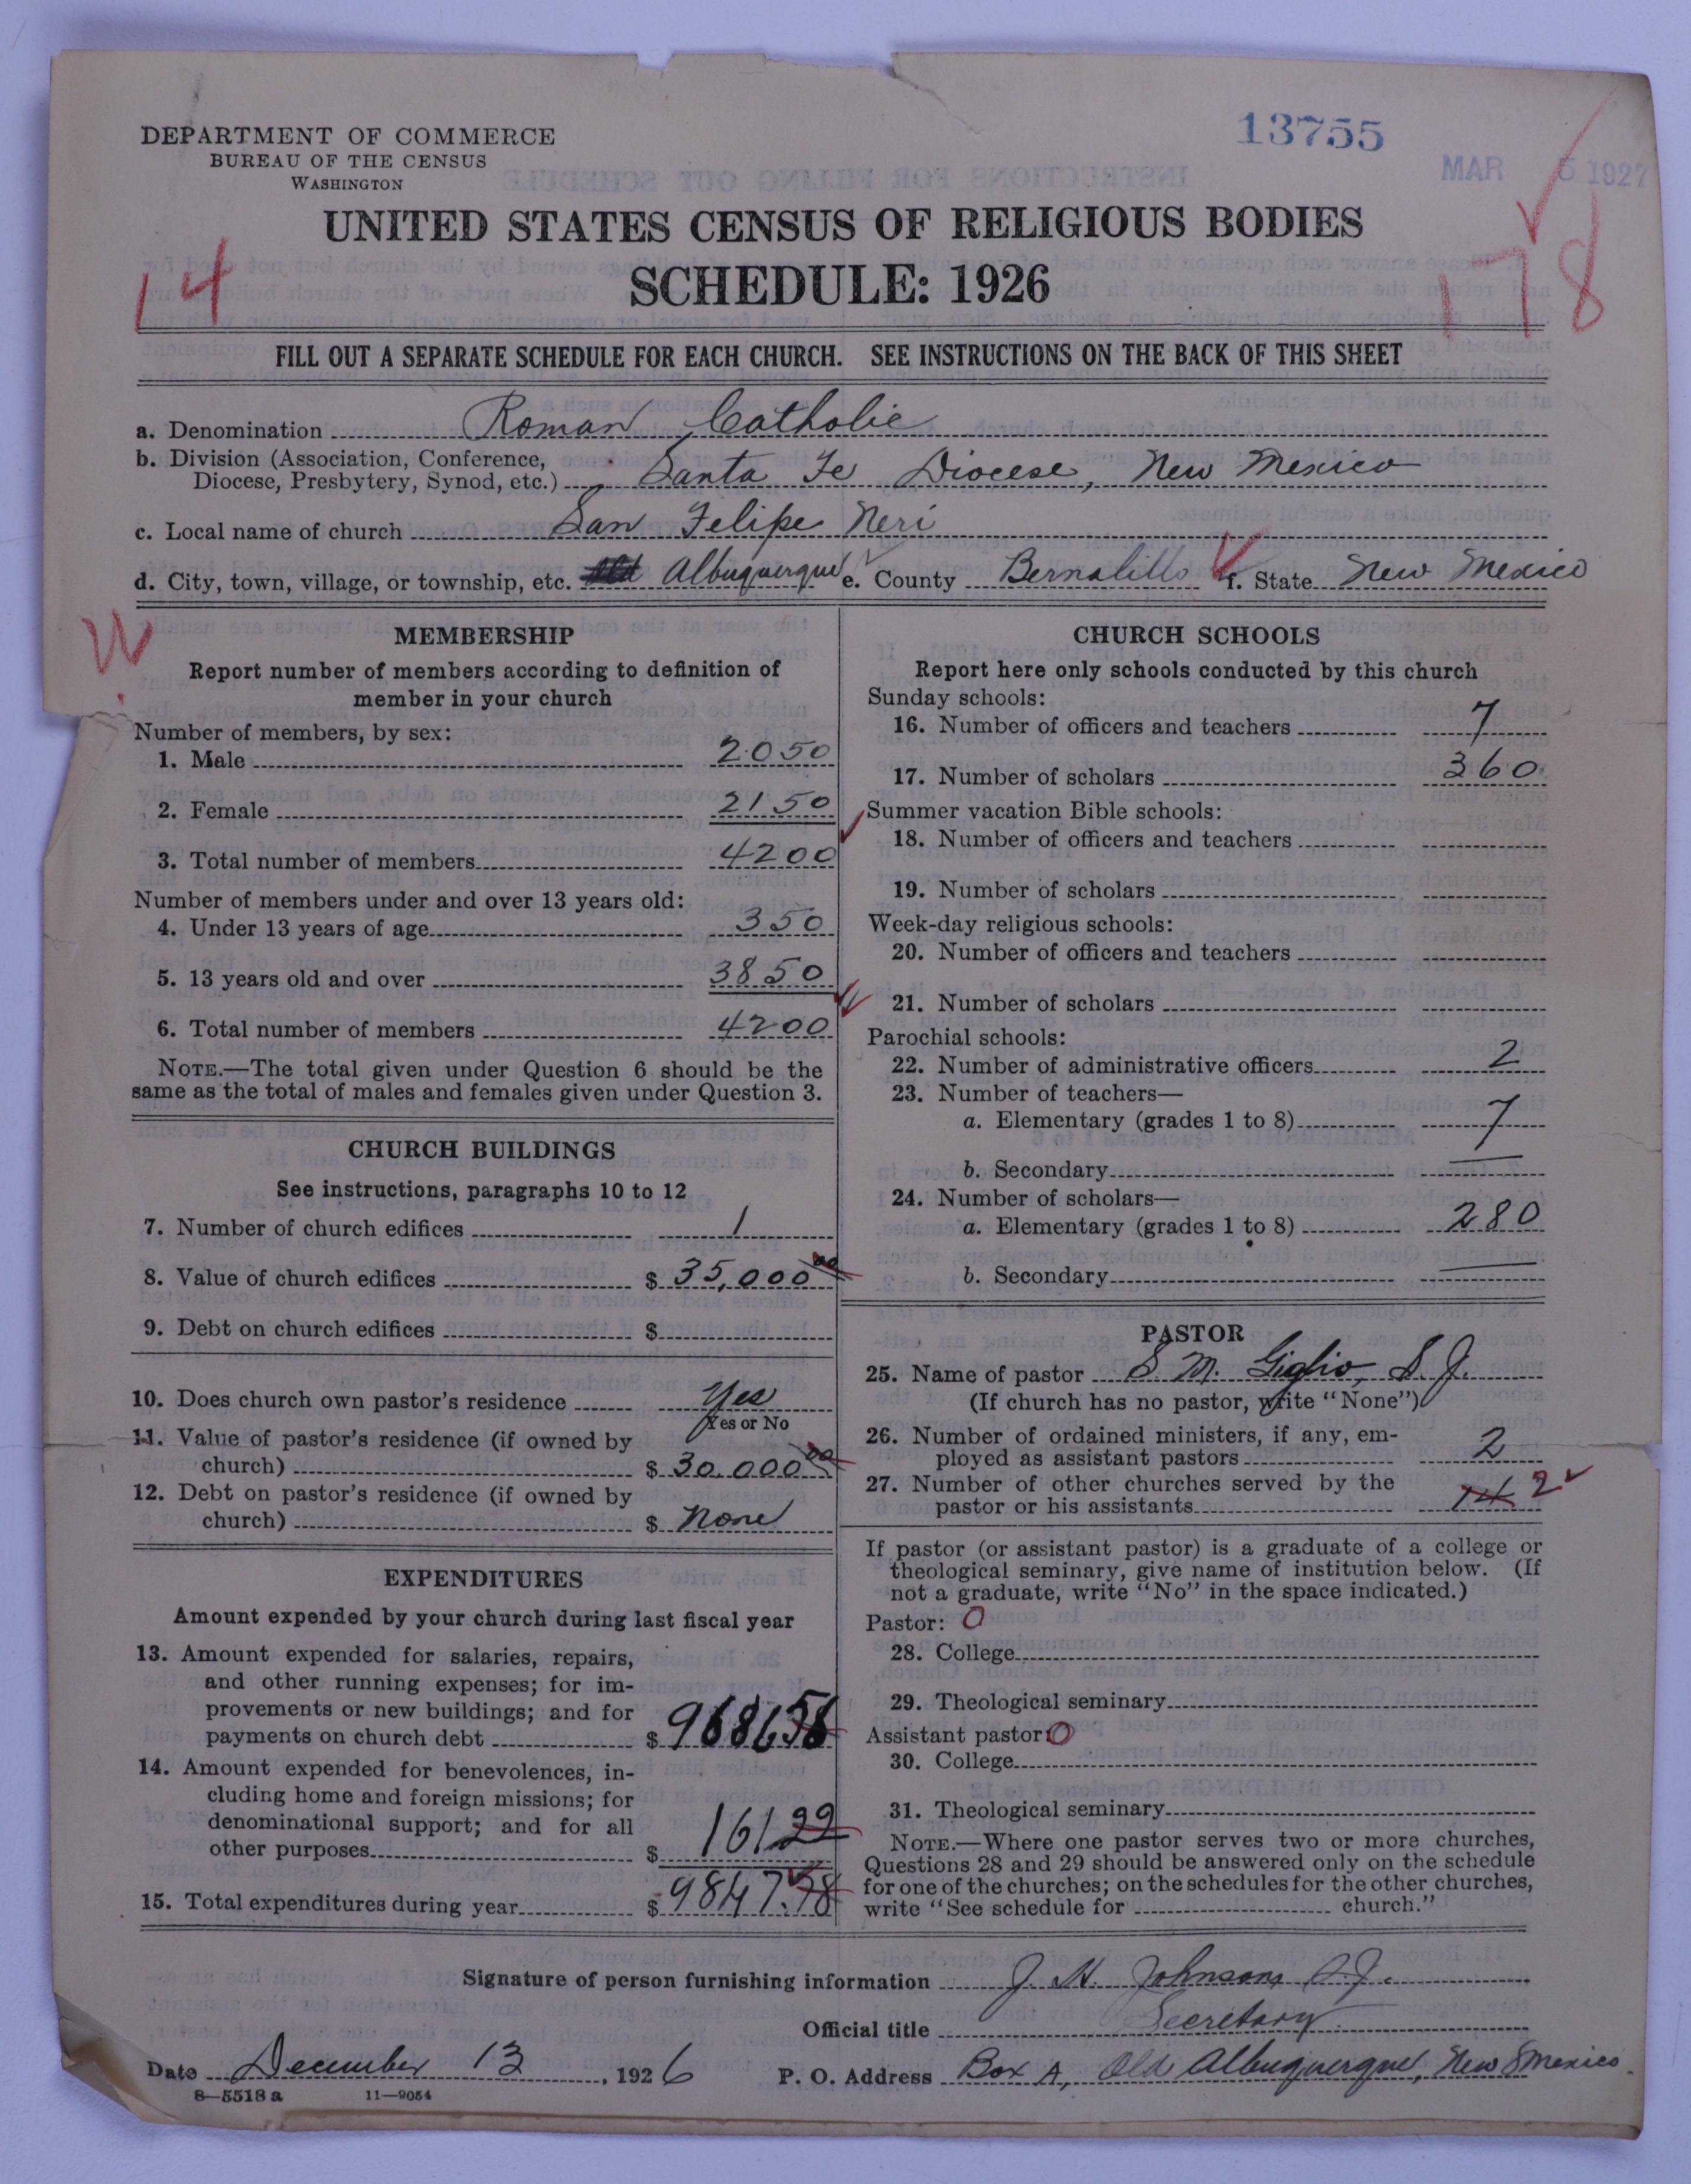 DEPARTMENT OF COMMERCE
BUREAU OF THE CENSUS
WASHINGTON
13755
MAR 5 1927
UNITED STATES CENSUS OF RELIGIOUS BODIES
SCHEDULE: 1926
14
178
FILL OUT A SEPARATE SCHEDULE FOR EACH CHURCH. SEE INSTRUCTIONS ON THE BACK OF THIS SHEET
a. Denomination Roman Catholic
b. Division (Association, Conference,
Diocese, Presbytery, Synod, etc.) Santa Fe Diocese, New Mexico
c. Local name of church San Felipe Neri
d. City, town, village, or township, etc. Old Albuquerque e. County Bernalillo f. State New Mexico
MEMBERSHIP
Report number of members according to definition of
member in your church
Number of members, by sex:
1. Male 2050
2. Female 2150
3. Total number of members 4200
Number of members under and over 13 years old:
4. Under 13 years of age 350
5. 13 years old and over 3850
6. Total number of members 4200
NOTE.—The total given under Question 6 should be the
same as the total of males and females given under Question 3.
CHURCH BUILDINGS
See instructions, paragraphs 10 to 12
7. Number of church edifices 1
8. Value of church edifices $ 35,000 00
9. Debt on church edifices $
10. Does church own pastor's residence Yes
Yes or No
11. Value of pastor's residence (if owned by
church) $ 30.000 00
12. Debt on pastor's residence (if owned by
church) $ None
EXPENDITURES
Amount expended by your church during last fiscal year
13. Amount expended for salaries, repairs,
and other running expenses; for im-
provements or new buildings; and for
payments on church debt $ 968656
14. Amount expended for benevolences, in-
cluding home and foreign missions; for
denominational support; and for all
other purposes $ 16122
15. Total expenditures during year $ 9847.78
CHURCH SCHOOLS
Report here only schools conducted by this church
Sunday schools:
16. Number of officers and teachers 7
17. Number of scholars 360
Summer vacation Bible schools:
18. Number of officers and teachers
19. Number of scholars
Week-day religious schools:
20. Number of officers and teachers
21. Number of scholars
Parochial schools:
22. Number of administrative officers 2
23. Number of teachers—
a. Elementary (grades 1 to 8) 7
b. Secondary —
24. Number of scholars—
a. Elementary (grades 1 to 8) 280
b. Secondary —
PASTOR
25. Name of pastor S. M. Giglio, S. J.
(If church has no pastor, write "None")
26. Number of ordained ministers, if any, em-
ployed as assistant pastors 2
27. Number of other churches served by the
pastor or his assistants 14 2
If pastor (or assistant pastor) is a graduate of a college or
theological seminary, give name of institution below. (If
not a graduate, write "No" in the space indicated.)
Pastor: O
28. College
29. Theological seminary
Assistant pastor: O
30. College
31. Theological seminary
NOTE.—Where one pastor serves two or more churches,
Questions 28 and 29 should be answered only on the schedule
for one of the churches; on the schedules for the other churches,
write "See schedule for church."
Signature of person furnishing information J. H. Johnson S.J.
Official title Secretary
Date December 13, 1926 P. O. Address Box A, Old Albuquerque, New Mexico.
8—5518 a 11—9054